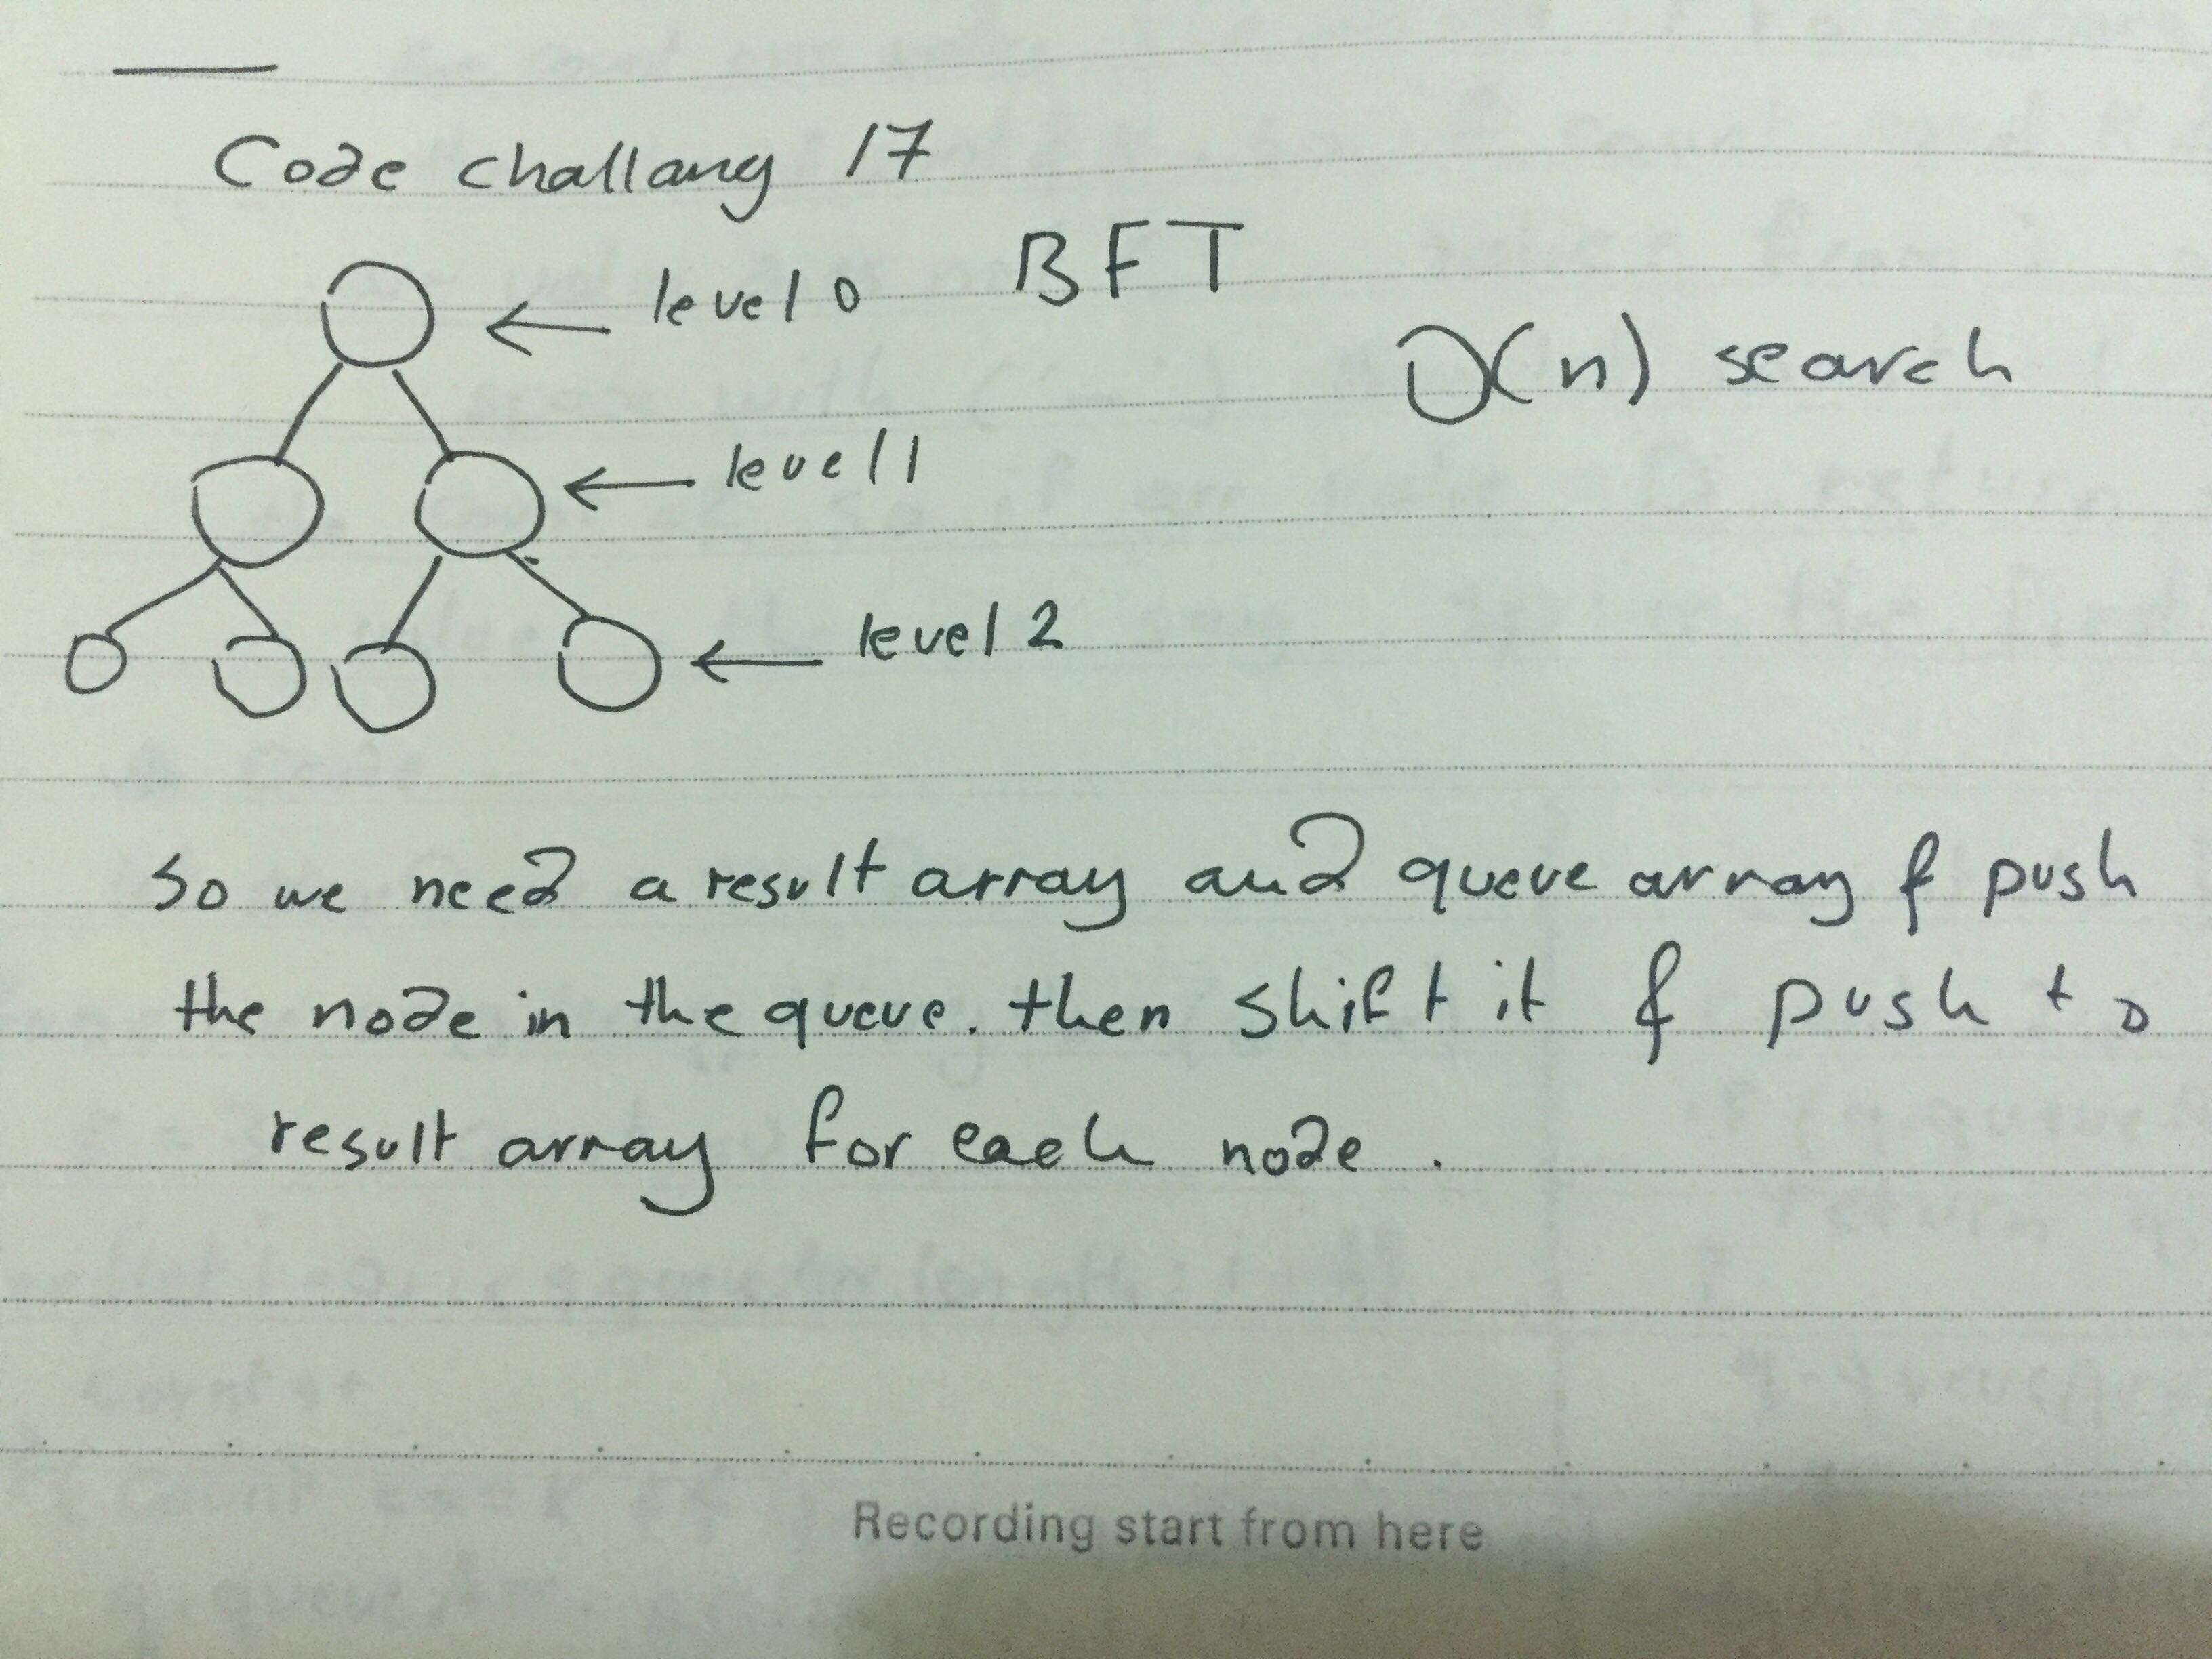 Code challang 17
BFT
level 0
O(n) search
level 1
level 2
So we need a result array and queue array & push
the node in the queue. then shift it & push to
result array for each node.
Recording start from here